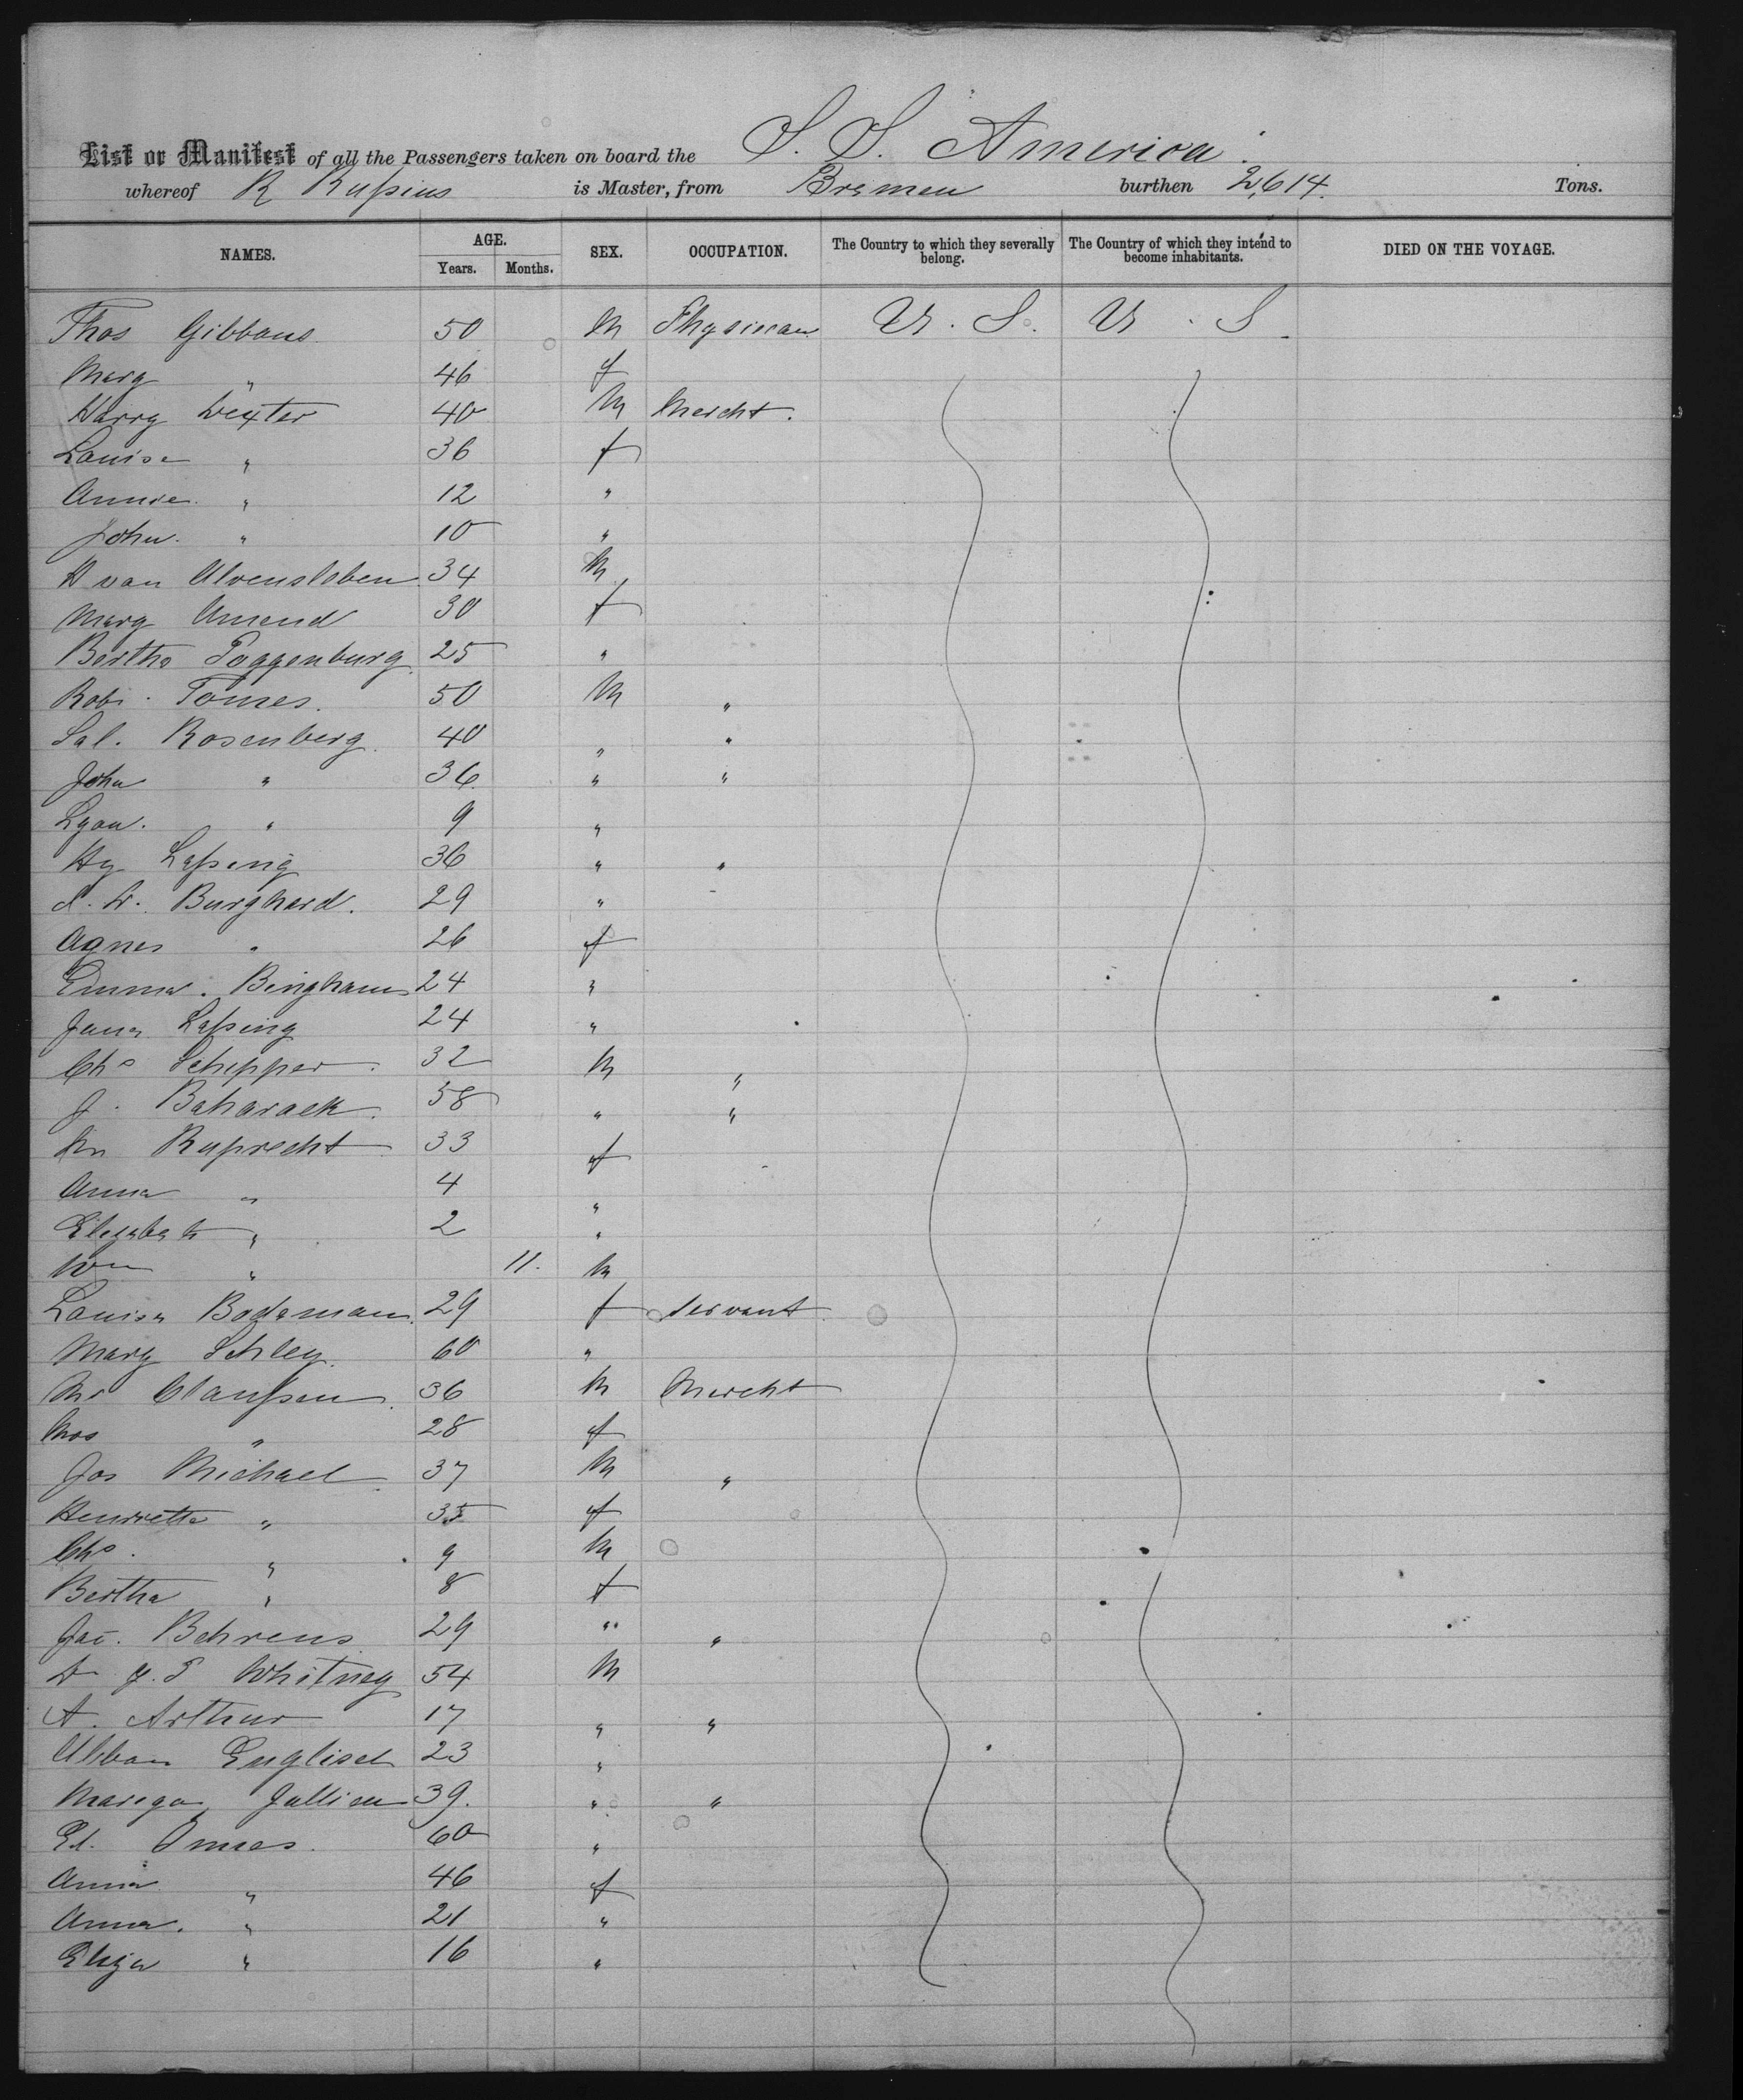 List or Manifest of all the Passengers taken on board the S. S. America.
whereof R Russius is Master, from Bremen burthen 2,614. Tons.
NAMES. AGE. SEX. OCCUPATION. The Country to which they severally belong. The Country of which they intend to become inhabitants. DIED ON THE VOYAGE.
Years. Months.
Thos Gibbons 50 M Physician U. S. U. S.
Marg " 46 f
Harry Dexter 40 M Mercht.
Louise " 36 f
Annie " 12 "
John " 10 "
H van Alvensleben 34 M
Marg Amend 30 f
Bertha Poggenburg 25 "
Robt. Tomes. 50 M "
Sal. Rosenberg. 40 " "
John " 36 " "
Lyon. " 9 "
Hy Lassing 36 " "
Burghard. 29 "
Agnes " 26 f
Emma. Bingham 24 "
Jane Lassing 24 "
Chs Schepper. 32 M "
J. Baharack. 58 " "
Ruprecht 33 f
Anna " 4 "
Elizabeth " 2 "
Wm " 11. M
Louisa Bodeman. 29 f servant
Mary Schley. 60 "
Mr Claussen. 36 M Mercht
Mrs " 28 f
Jos Michael. 37 M "
Henrietta " 35 f
Chs. " 9 M
Bertha " 8 f
Jac. Behrens 29 " "
Dr J. P Whitney 54 M
A. Arthur 17 " "
Alban Englisch 23 "
Jullien 39. " "
Ed. Omies. 60 "
Anna " 46 f
Anna. " 21 "
Eliza " 16 "